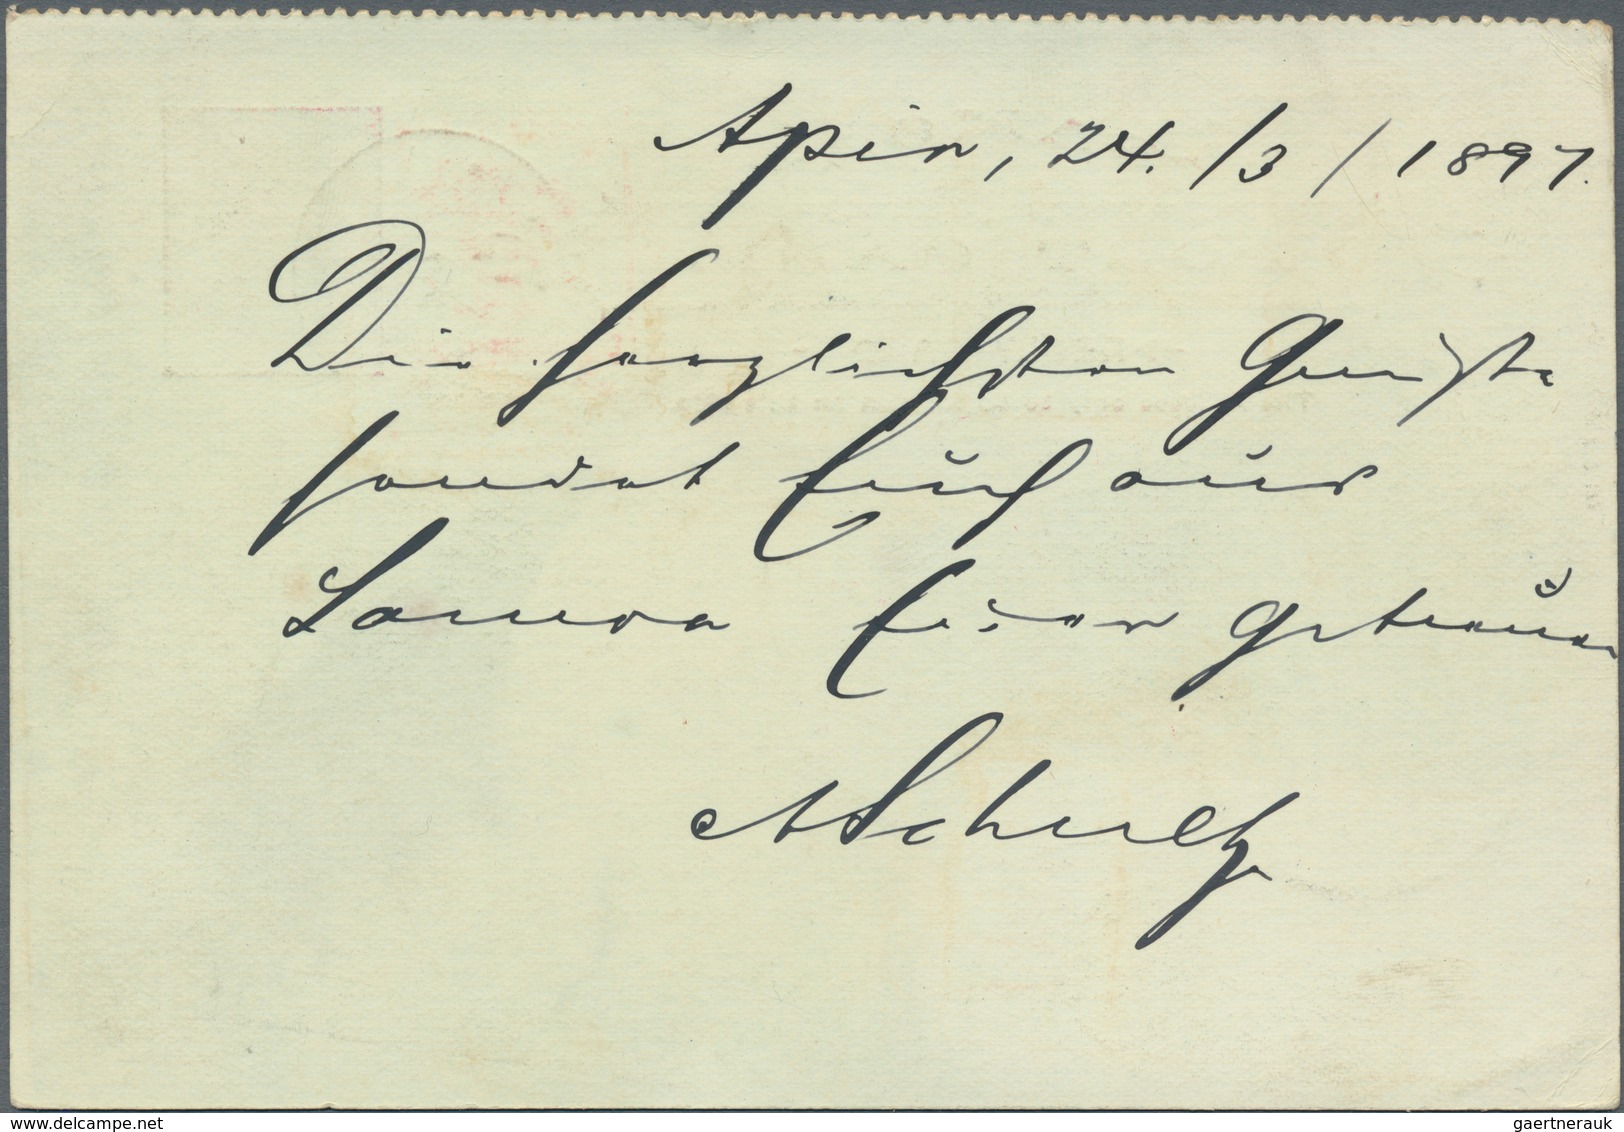 Apia, 24./3/1897.
Die herzlichsten Grüße
sendet Euch aus
Samoa Euer getreuer
ASchultz
delcampe.net
gaertnerauk